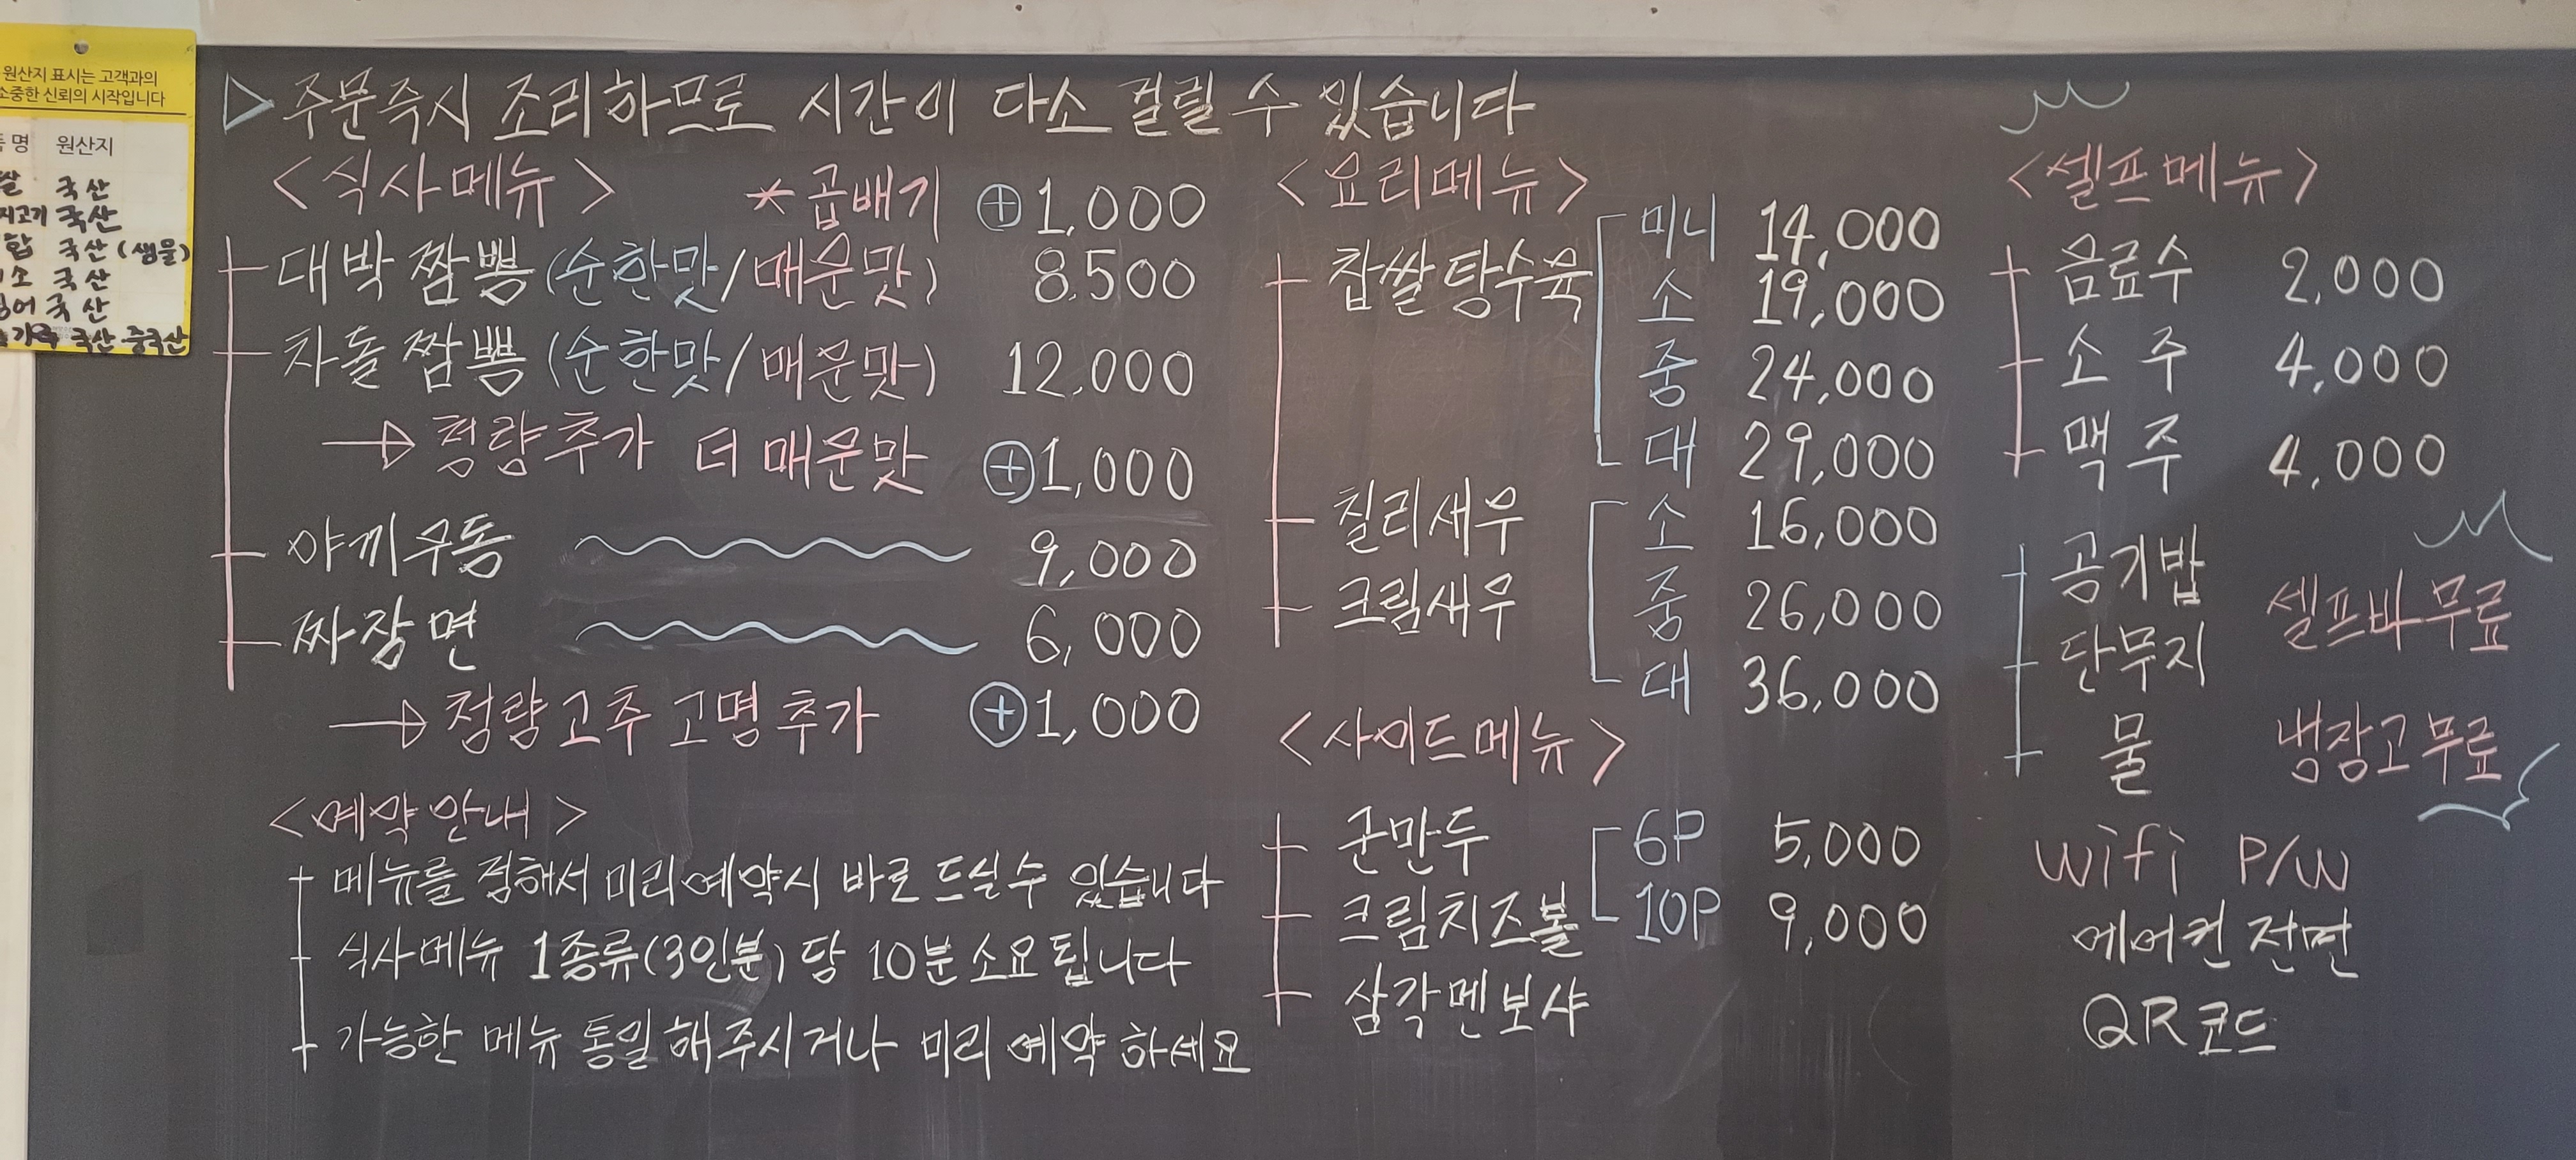 원산지 표시는 고객과의
소중한 신뢰의 시작입니다
명 원산지
쌀 국산
지고기 국산
국산 (생물)
국산
국산
국산 중국산
▷ 주문즉시 조리하므로 시간이 다소 걸릴 수 있습니다
<식사메뉴> * 곱배기 ⊕ 1,000
대박 짬뽕 (순한맛/매운맛) 8,500
차돌 짬뽕 (순한맛/매운맛) 12,000
→ 청량추가 더 매운맛 ⊕ 1,000
야끼우동 9,000
짜장면 6,000
→ 청량고추 고명추가 ⊕ 1,000
<예약안내>
메뉴를 정해서 미리예약시 바로 드실수 있습니다
식사메뉴 1종류(3인분)당 10분 소요됩니다
가능한 메뉴 통일해주시거나 미리 예약하세요
<요리메뉴>
찹쌀탕수육 미니 14,000
소 19,000
중 24,000
대 29,000
칠리새우 소 16,000
크림새우 중 26,000
대 36,000
<사이드메뉴>
군만두 6P 5,000
크림치즈볼 10P 9,000
삼각멘보샤
<셀프메뉴>
음료수 2,000
소주 4,000
맥주 4,000
공기밥
단무지 셀프바 무료
물 냉장고 무료
Wifi P/W
에어컨 전면
QR코드